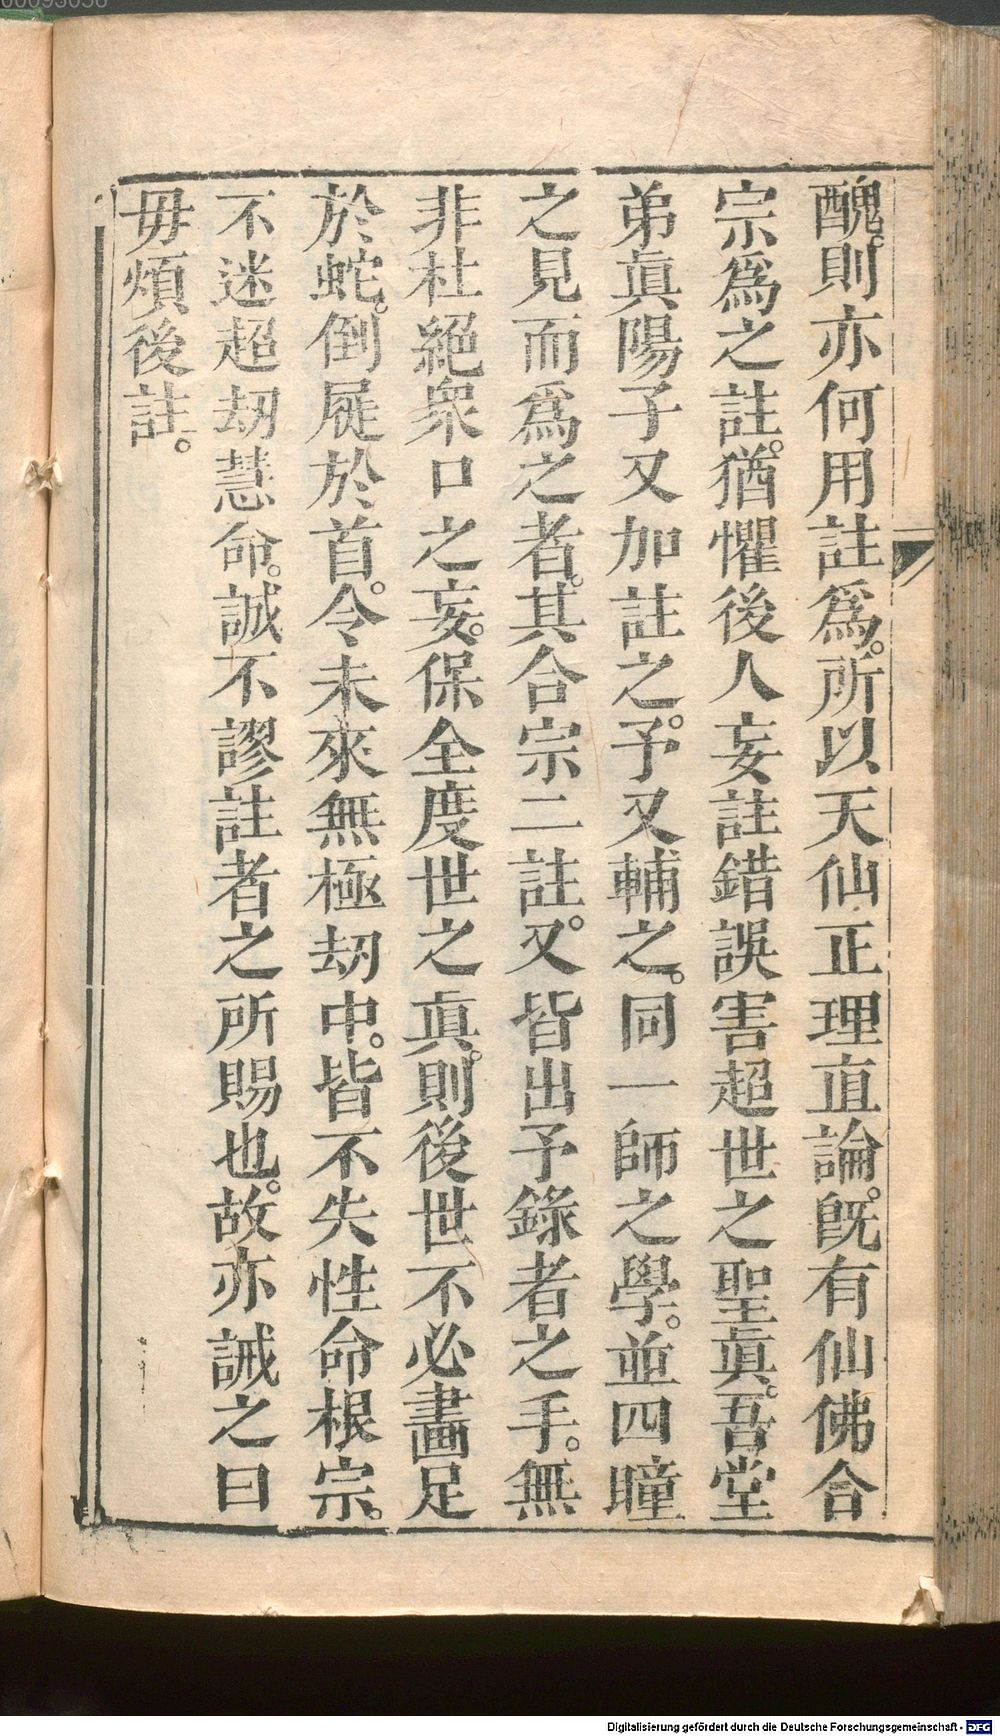 醜。則亦何用註爲。所以天仙正理直論。旣有仙佛合
宗爲之註。猶懼後人妄註錯誤害超世之聖眞。吾堂
弟眞陽子又加註之。予又輔之。同一師之學。並四瞳
之見而爲之者。其合宗二註。又皆出予錄者之手。無
非杜絕衆口之妄。保全度世之眞。則後世不必畫足
於蛇。倒屣於首。令未來無極劫中。皆不失性命根宗。
不迷超劫慧命。誠不謬註者之所賜也。故亦誡之曰
毋煩後註。
Digitalisierung gefördert durch die Deutsche Forschungsgemeinschaft - DFG